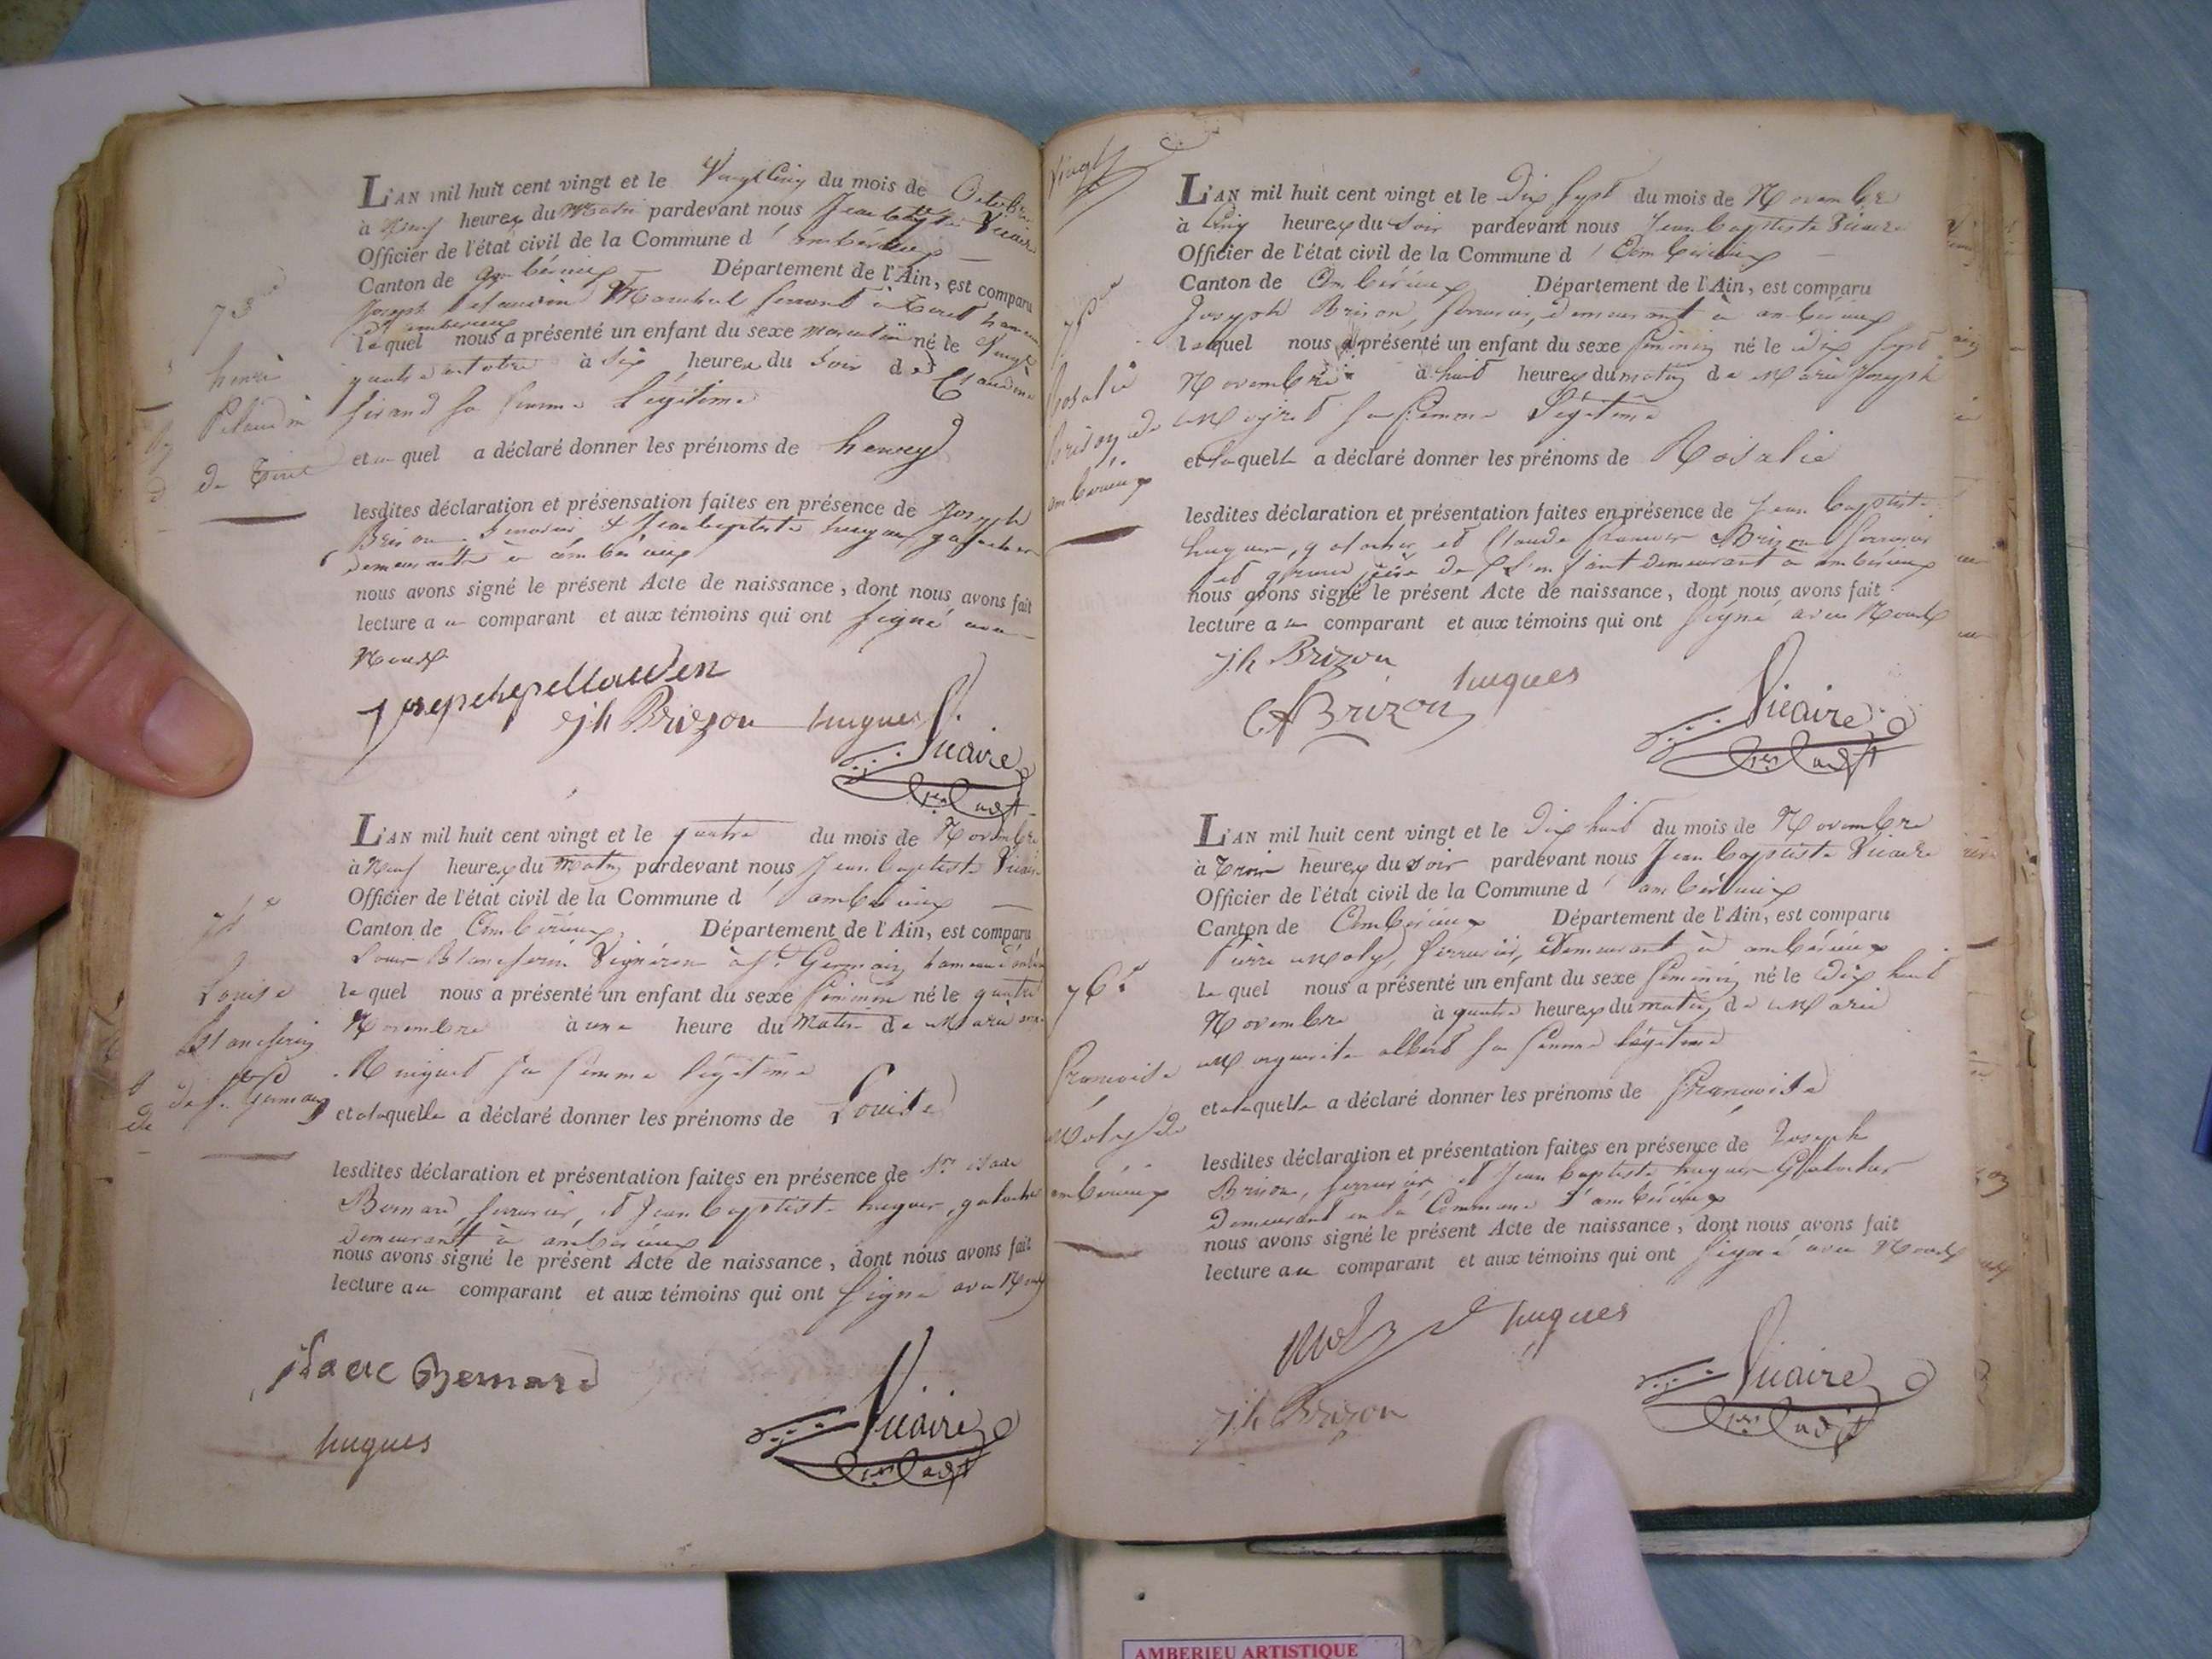 73me
henri
Pelaudin
de Tiret
L'AN mil huit cent vingt et le Vingt Cinq du mois de Octobre
à Neuf heures du Matin pardevant nous Jean baptiste Vicaire
Officier de l'état civil de la Commune d' ambérieux
Canton de ambérieux Département de l'Ain, est comparu
Joseph Marechal ferrant à Tiret hameau
d'ambérieux
lequel nous a présenté un enfant du sexe masculin né le Vingt
quatre octobre à Six heures du Soir de Claudine
Sirand sa femme Légitime
et auquel a déclaré donner les prénoms de henry
lesdites déclaration et présensation faites en présence de Joseph
Brison Serrurier & Jean baptiste hugues galocher
demeurants à ambérieux
nous avons signé le présent Acte de naissance, dont nous avons fait
lecture au comparant et aux témoins qui ont Signé avec
Nous
jh Brizon hugues
Vicaire
1er adjt
74e
Louise
Blancferin
de St. Germain
L'AN mil huit cent vingt et le quatre du mois de Novembre
à Neuf heures du Matin pardevant nous Jean baptiste Vicaire
Officier de l'état civil de la Commune d' ambérieux
Canton de Ambérieux, Département de l'Ain, est comparu
Louis Vigneron à St. Germain hameau d'ambérieux
lequel nous a présenté un enfant du sexe féminin né le quatre
Novembre à une heure du Matin de Marie
sa femme légitime
et a laquelle a déclaré donner les prénoms de Louise
lesdites déclaration et présentation faites en présence de Sr. isaac
Bernard, serrurier, et Jean baptiste hugues, galocher
demeurant à ambérieux
nous avons signé le présent Acte de naissance, dont nous avons fait
lecture au comparant et aux témoins qui ont Signé avec Nous
isaac Bernard
hugues
Vicaire
1er adjt
Vingt
75e
Rosalie
Brison de
ambérieux
L'AN mil huit cent vingt et le Dix Sept du mois de Novembre
à Cinq heures du Soir pardevant nous Jean baptiste Vicaire
Officier de l'état civil de la Commune d' Ambérieux
Canton de Ambérieux Département de l'Ain, est comparu
Joseph Brison, serrurier, demeurant à ambérieux
lequel nous a présenté un enfant du sexe féminin né le dix Sept
Novembre à huit heures du matin de Marie Joseph
sa femme Légitime
et a laquelle a déclaré donner les prénoms de Rosalie
lesdites déclaration et présentation faites en présence de Jean baptiste
hugues, galocher et Claude françois Brison serrurier
et grand père de l'enfant demeurant à ambérieux
nous avons signé le présent Acte de naissance, dont nous avons fait
lecture au comparant et aux témoins qui ont Signé avec Nous
jh Brizon hugues
Cf Brizon
Vicaire
1er adjt
76e
francoise
Moly de
ambérieux
L'AN mil huit cent vingt et le Dix huit du mois de Novembre
à Trois heures du Soir pardevant nous Jean baptiste Vicaire
Officier de l'état civil de la Commune d' ambérieux
Canton de Ambérieux Département de l'Ain, est comparu
Pierre Moly, serrurier, demeurant à ambérieux
lequel nous a présenté un enfant du sexe féminin né le dix huit
Novembre à quatre heures du matin de Marie
Marguerite albert sa femme légitime
et a laquelle a déclaré donner les prénoms de francoise
lesdites déclaration et présentation faites en présence de Joseph
Brison, serrurier et Jean baptiste hugues Galocher
Demeurant en la Commune d'ambérieux
nous avons signé le présent Acte de naissance, dont nous avons fait
lecture au comparant et aux témoins qui ont Signé avec Nous
hugues
jh Brizon
Vicaire
1er adjt
AMBERIEU ARTISTIQUE